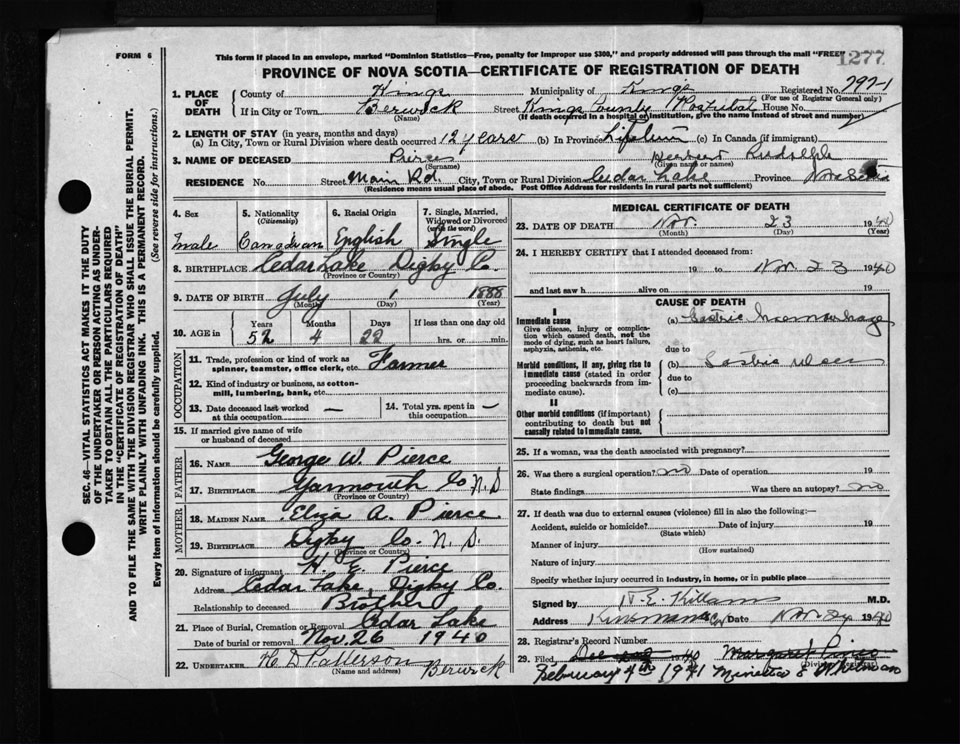 FORM 6
This form if placed in an envelope, marked "Dominion Statistics—Free, penalty for improper use $300," and properly addressed will pass through the mail "FREE"
1277
PROVINCE OF NOVA SCOTIA—CERTIFICATE OF REGISTRATION OF DEATH
SEC. 46—VITAL STATISTICS ACT MAKES IT THE DUTY
OF THE UNDERTAKER OR PERSON ACTING AS UNDER-
TAKER TO OBTAIN ALL THE PARTICULARS REQUIRED
IN THE "CERTIFICATE OF REGISTRATION OF DEATH"
AND TO FILE THE SAME WITH THE DIVISION REGISTRAR WHO SHALL ISSUE THE BURIAL PERMIT.
WRITE PLAINLY WITH UNFADING INK. THIS IS A PERMANENT RECORD.
Every item of Information should be carefully supplied. (See reverse side for instructions.)
1. PLACE OF DEATH
County of Kings Municipality of Kings Registered No. 797-1
(For use of Registrar General only)
If in City or Town Berwick Street Kings County Hospital House No.
(Name) (If death occurred in a hospital or institution, give the name instead of street and number)
2. LENGTH OF STAY (in years, months and days)
(a) In City, Town or Rural Division where death occurred 12 years (b) In Province Lifetime (c) In Canada (if immigrant)
3. NAME OF DECEASED Pierce Herbert Rudolph
(Surname) (Given name or names)
RESIDENCE No. Street Main Rd. City, Town or Rural Division Cedar Lake Province Nova Scotia
(Residence means usual place of abode. Post Office Address for residents in rural parts not sufficient)
4. Sex 5. Nationality (Citizenship) 6. Racial Origin 7. Single, Married, Widowed or Divorced (write the word)
male Canadian English Single
8. BIRTHPLACE Cedar Lake Digby Co.
(Province or Country)
9. DATE OF BIRTH July 1 1888
(Month) (Day) (Year)
10. AGE in Years Months Days If less than one day old
52 4 22 hrs. or min.
OCCUPATION
11. Trade, profession or kind of work as spinner, teamster, office clerk, etc. Farmer
12. Kind of industry or business, as cotton-mill, lumbering, bank, etc.
13. Date deceased last worked at this occupation — 14. Total yrs. spent in this occupation —
15. If married give name of wife or husband of deceased
FATHER
16. Name George W. Pierce
17. Birthplace Yarmouth Co N.S
(Province or Country)
MOTHER
18. Maiden Name Eliza A. Pierce
19. Birthplace Digby Co. N.S.
(Province or Country)
20. Signature of informant H. E. Pierce
Address Cedar Lake, Digby Co.
Relationship to deceased Brother
21. Place of Burial, Cremation or Removal Cedar Lake
Date of burial or removal Nov. 26 1940
22. UNDERTAKER H D Patterson Berwick
(Name and address)
MEDICAL CERTIFICATE OF DEATH
23. DATE OF DEATH Nov. 23 1940
(Month) (Day) (Year)
24. I HEREBY CERTIFY that I attended deceased from:
19 to Nov. 23 1940
and last saw h alive on 19
CAUSE OF DEATH
I
Immediate cause
Give disease, injury or complication which caused death, not the mode of dying, such as heart failure, asphyxia, asthenia, etc.
(a) Gastric Haemorrhage
due to
Morbid conditions, if any, giving rise to immediate cause (stated in order proceeding backwards from immediate cause)
(b) Gastric ulcer
due to
(c)
II
Other morbid conditions (if important) contributing to death but not causally related to immediate cause.
25. If a woman, was the death associated with pregnancy?
26. Was there a surgical operation? no Date of operation 19
State findings Was there an autopsy? no
27. If death was due to external causes (violence) fill in also the following:—
Accident, suicide or homicide? Date of injury 19
(State which)
Manner of injury
(How sustained)
Nature of injury
Specify whether injury occurred in industry, in home, or in public place
Signed by H. E. Killam M.D.
Address Kinsmans Cor Date Nov 1940
28. Registrar's Record Number
29. Filed, Dec 1940 Margaret
(Division Registrar)
February 4th 1941 Minetta E Whitman